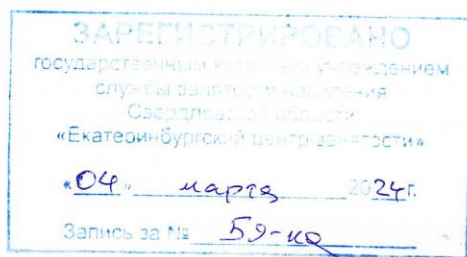 ЗАРЕГИСТРИРОВАНО
государственным казенным учреждением
службы занятости населения
Свердловской области
«Екатеринбургский центр занятости»
«04» марта 2024г.
Запись за № 59-кд